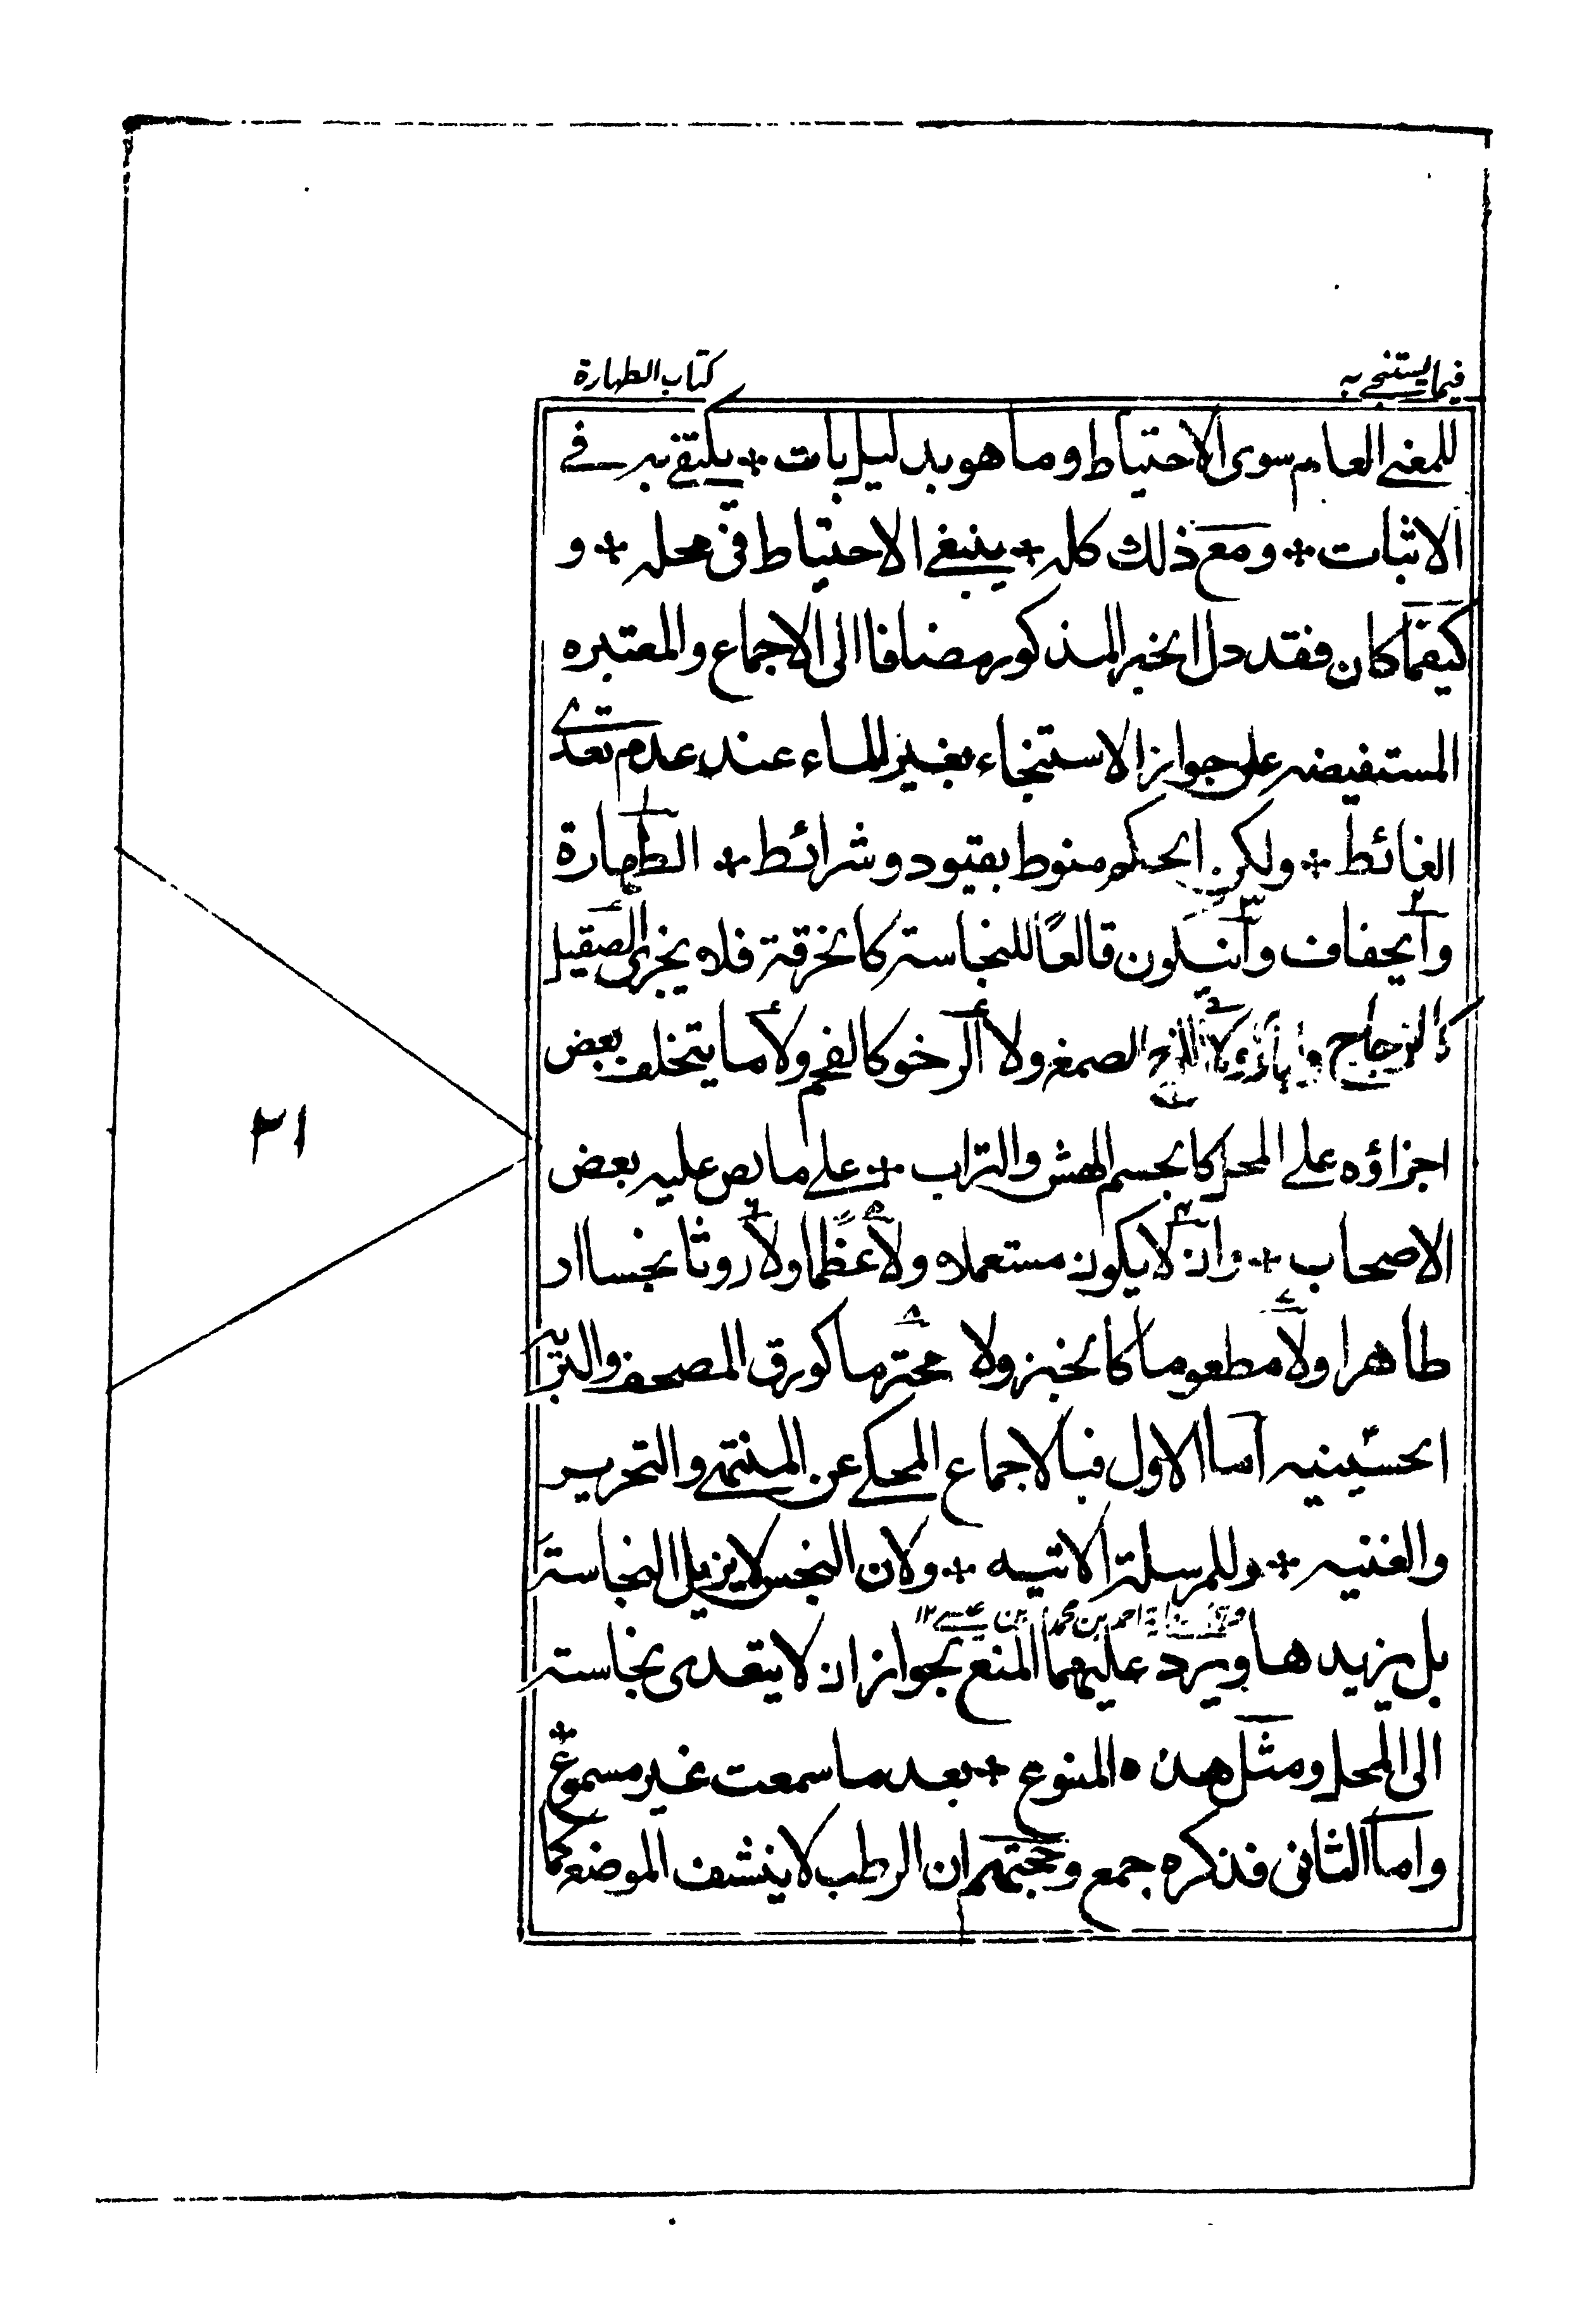 فيما يستنجى به
كتاب الطهارة
للمغنى العام سوى الاحتياط وما هو بدليل بات * يكتفى به فى
الاثبات * ومع ذلك كله * ينبغى الاحتياط فى محله * و
كيفما كان فقد دل الخبر المذكور مضافا الى الاجماع والمعتبره
المستفيضه على جواز الاستنجاء بغير الماء عند عدم تعدى
الغائط * ولكن الحكم منوط بقيود وشرائط * الطهارة
والجفاف وان يكون قالعًا للنجاسة كالخرقة فلا يجزى الصقيل
كالزجاج ولا اللزج الصمغ ولا الرخو كالفحم ولا ما يتخلف بعض
اجزاؤه على المحل كالجسم الهش والتراب * على ما نص عليه بعض
الاصحاب * وان لا يكون مستعملا ولا عظما ولا روثا نجسا او
طاهرا ولا مطعوما كالخبز ولا محترما كورق المصحف والتربه
الحسينيه اما الاول فبالاجماع المحكى عن المنتهى والتحرير
والغنيه * وللمرسلة الاتيه * ولان النجس لا يزيل النجاسة
احمد بن محمد بن عيسى ١٢
بل يزيدها ويرد عليهما المنع بجواز ان لا يتعدى نجاسته
الى المحل ومثل هذه المنوع * بعد ما سمعت غير مسموع *
واما الثانى فذكره جمع وحجتهم ان الرطب لا ينشف الموضع كما
٣١